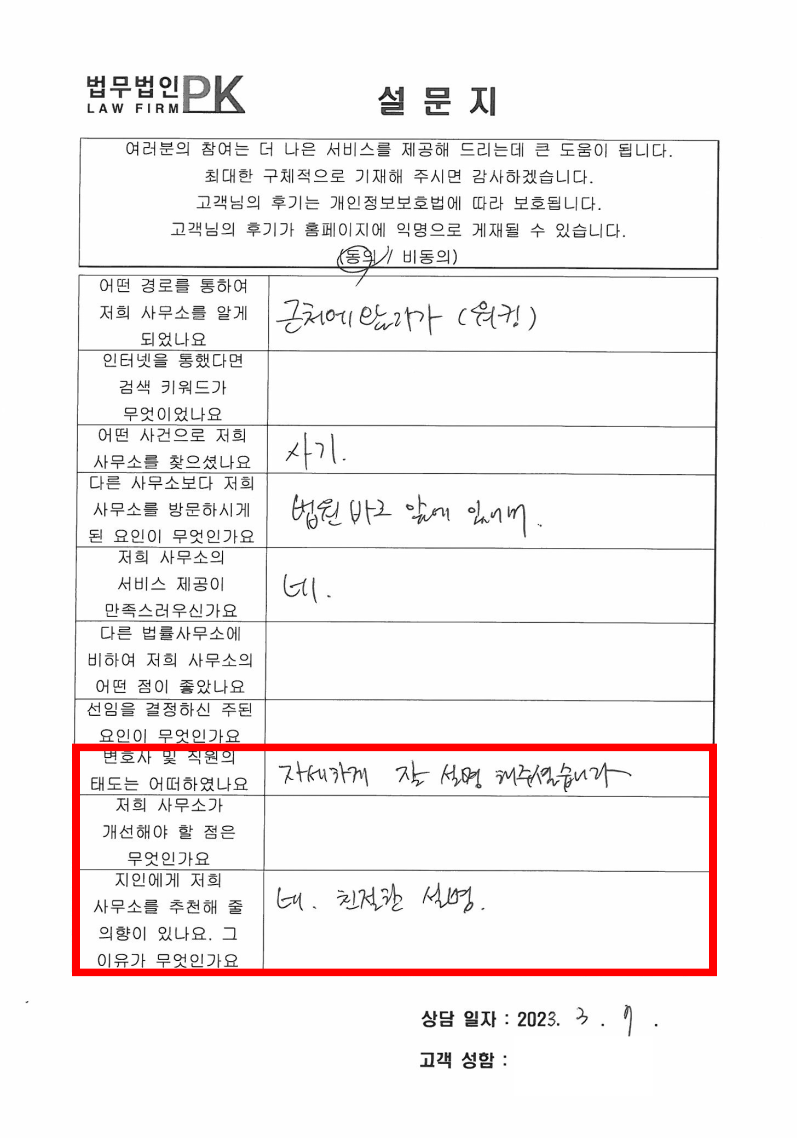 법무법인 PK
LAW FIRM
설문지
여러분의 참여는 더 나은 서비스를 제공해 드리는데 큰 도움이 됩니다.
최대한 구체적으로 기재해 주시면 감사하겠습니다.
고객님의 후기는 개인정보보호법에 따라 보호됩니다.
고객님의 후기가 홈페이지에 익명으로 게재될 수 있습니다.
(동의 / 비동의)
어떤 경로를 통하여
저희 사무소를 알게
되었나요
근처에 왔다가 (워킹)
인터넷을 통했다면
검색 키워드가
무엇이었나요
어떤 사건으로 저희
사무소를 찾으셨나요
사기.
다른 사무소보다 저희
사무소를 방문하시게
된 요인이 무엇인가요
법원 바로 앞에 있어서.
저희 사무소의
서비스 제공이
만족스러우신가요
네.
다른 법률사무소에
비하여 저희 사무소의
어떤 점이 좋았나요
선임을 결정하신 주된
요인이 무엇인가요
변호사 및 직원의
태도는 어떠하였나요
자세하게 잘 설명 해주셨습니다
저희 사무소가
개선해야 할 점은
무엇인가요
지인에게 저희
사무소를 추천해 줄
의향이 있나요. 그
이유가 무엇인가요
네. 친절한 설명.
상담 일자 : 2023. 3 . 7 .
고객 성함 :